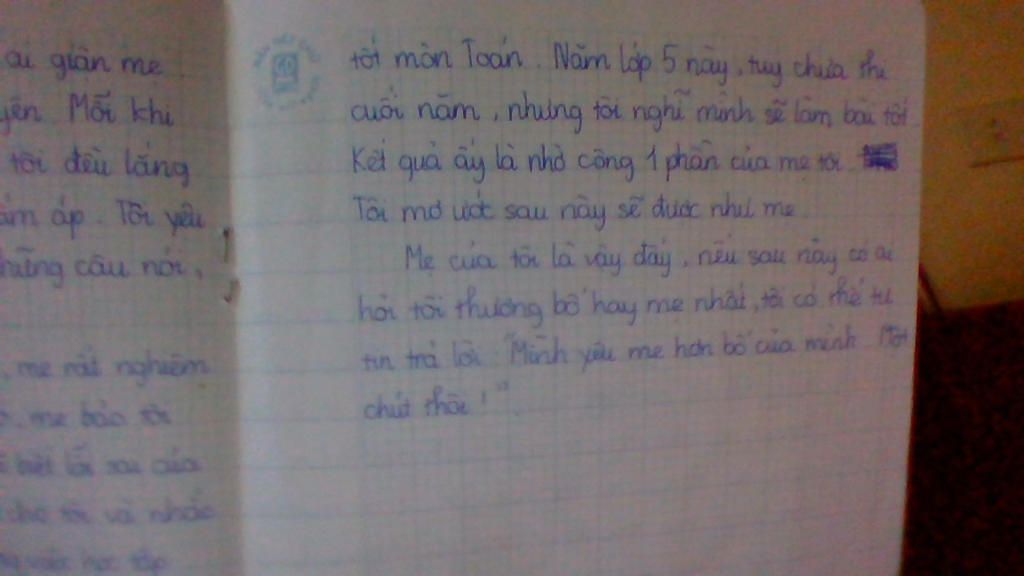 ai giận mẹ
yên. Mỗi khi
tôi đều lắng
ấm áp. Tôi yêu
những câu nói,
, mẹ rất nghiêm
, mẹ bảo tôi
biết lỗi sai của
cho tôi và nhắc
học tập
tốt môn Toán. Năm lớp 5 này, tuy chưa thi
cuối năm, nhưng tôi nghĩ mình sẽ làm bài tốt
Kết quả ấy là nhờ công 1 phần của mẹ tôi.
Tôi mơ ước sau này sẽ được như mẹ.
Mẹ của tôi là vậy đấy, nếu sau này có ai
hỏi tôi thương bố hay mẹ nhất, tôi có thể tự
tin trả lời: "Mình yêu mẹ hơn bố của mình. Một
chút thôi!".